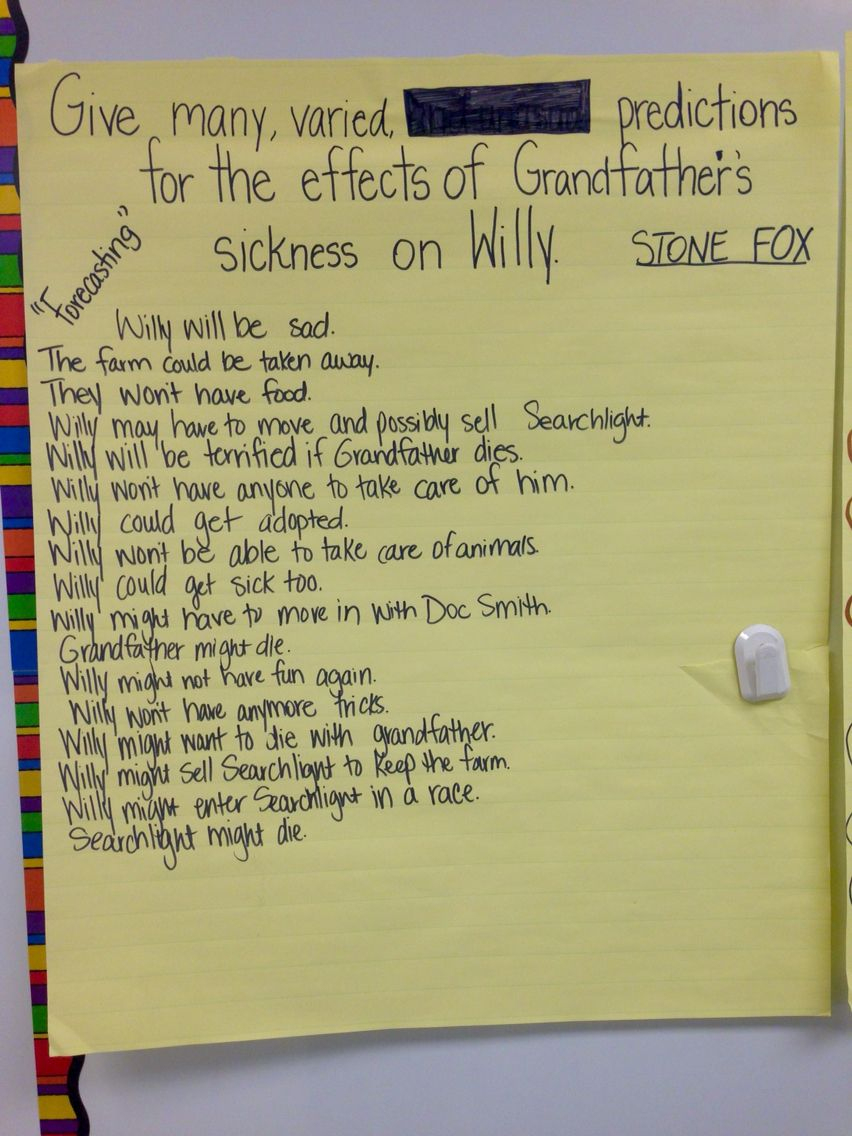 Give many, varied, predictions
for the effects of Grandfather's
"Forecasting"
sickness on Willy. STONE FOX
Willy will be sad.
The farm could be taken away.
They won't have food.
Willy may have to move and possibly sell Searchlight.
Willy will be terrified if Grandfather dies.
Willy won't have anyone to take care of him.
Willy could get adopted.
Willy won't be able to take care of animals.
Willy could get sick too.
Willy might have to move in with Doc Smith.
Grandfather might die.
Willy might not have fun again.
Willy won't have anymore tricks.
Willy might want to die with grandfather.
Willy might sell Searchlight to keep the farm.
Willy might enter Searchlight in a race.
Searchlight might die.